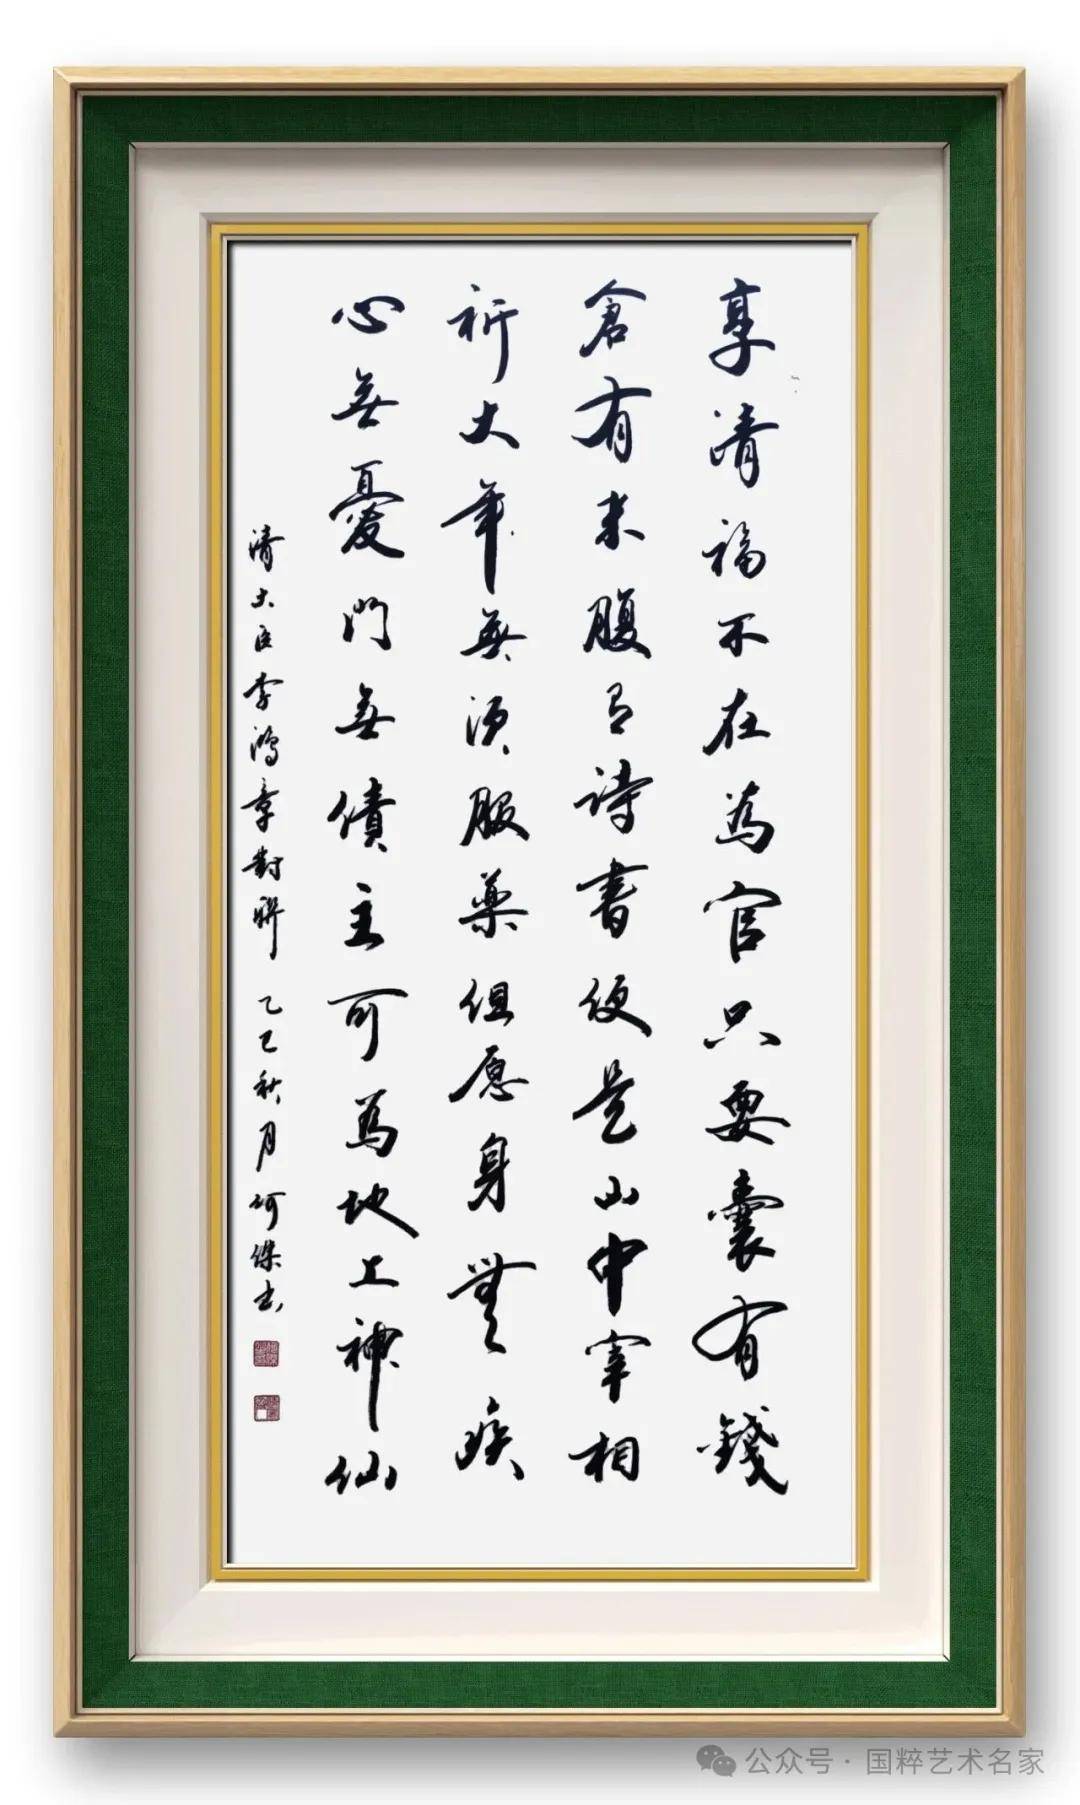 享清福不在為官只要囊有錢
倉有米腹有詩書便是山中宰相
祈大年無須服藥但愿身無疾
心無憂門無債主可為地上神仙
清大臣李鴻章對聯 乙巳秋月何傑書
公众号 · 国粹艺术名家